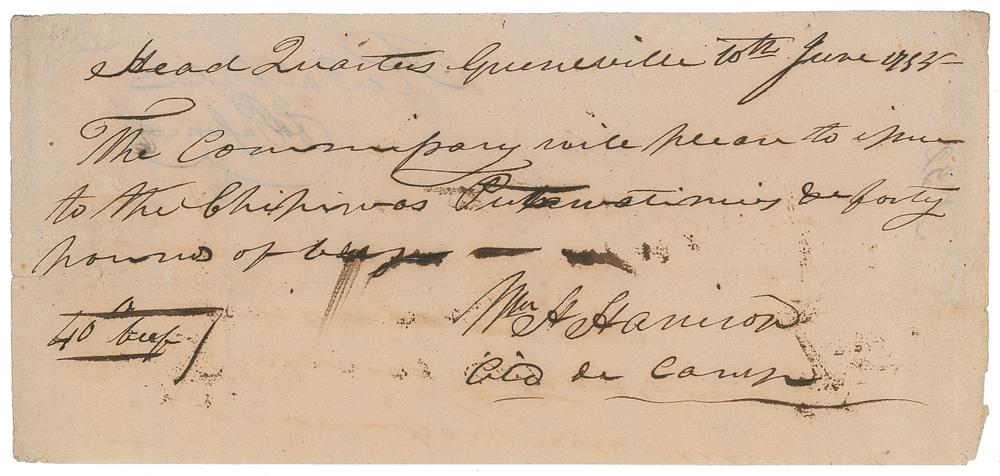 Head Quarters Greeneville 10th June 1795
The Commissary will please to issue
to the Chipiwas Putawatimies &c forty
pounds of beef
Wm H Harrison
Aid de Camp
40 lb beef